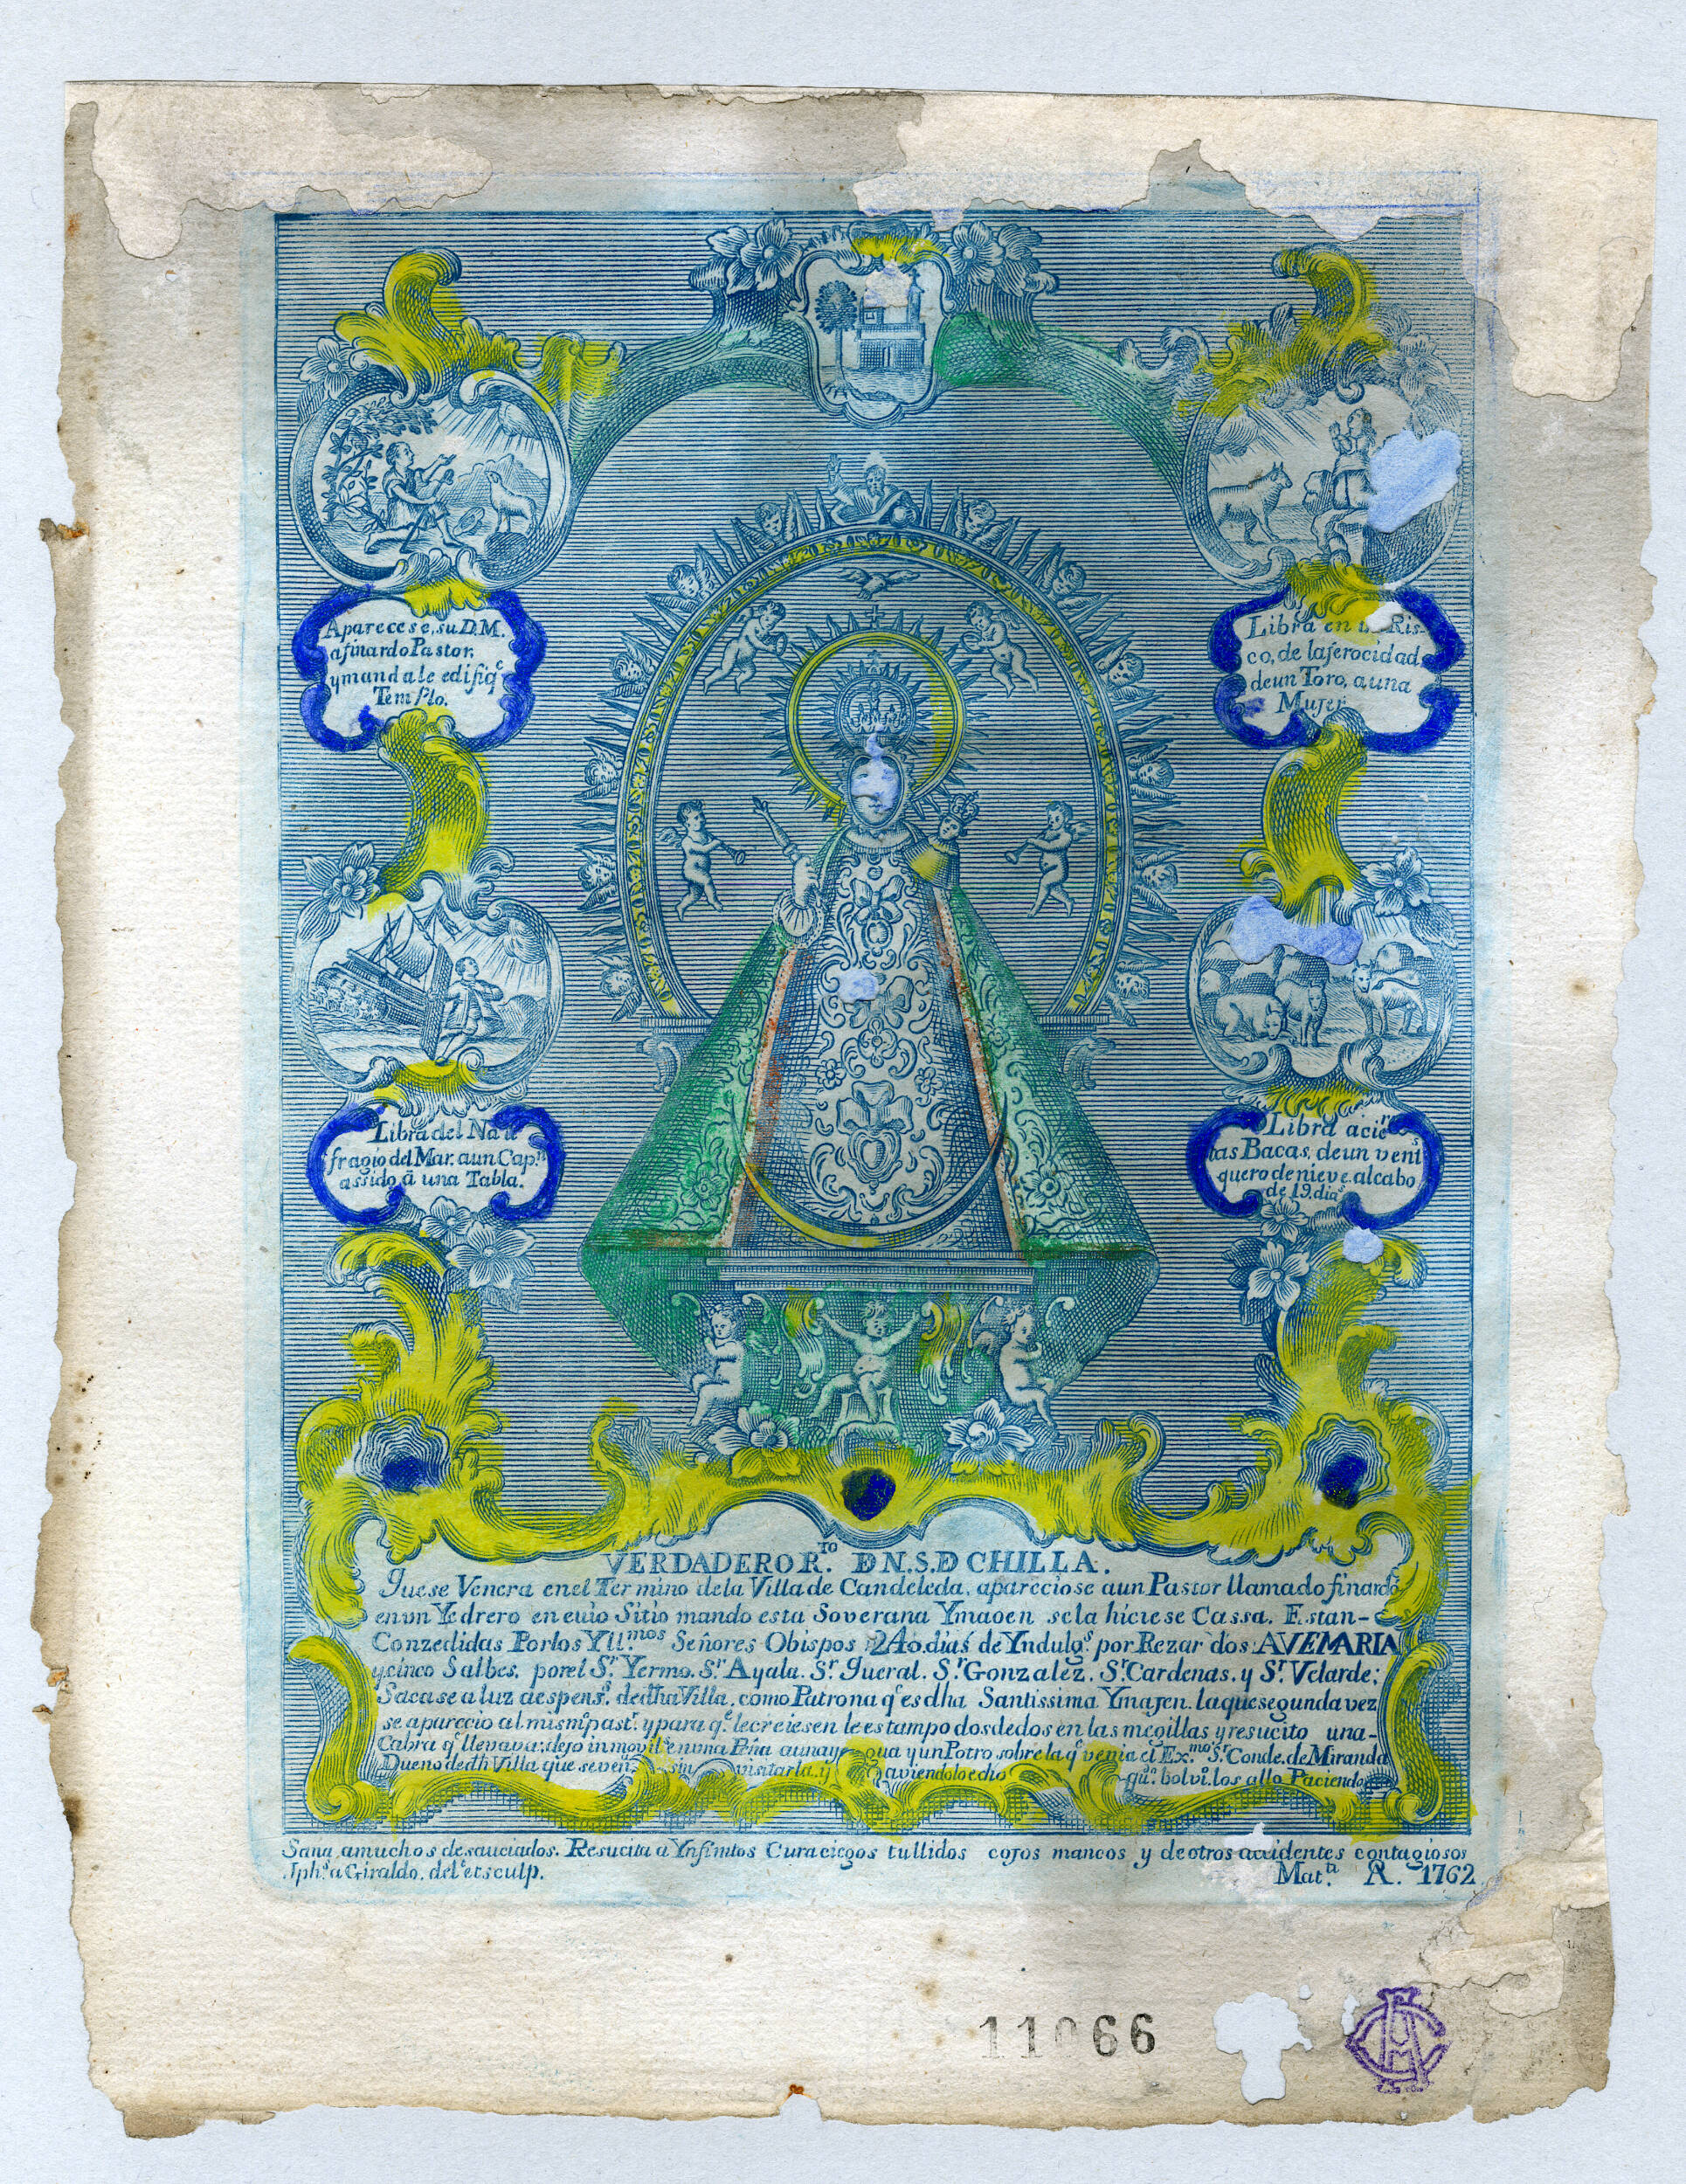 Aparecese, su D. M.
a finardo Pastor,
y mandale edifiq.e
Templo.
Libra en un Ris-
co, de la ferocidad
de un Toro, a una
Mujer
Libra del Nau
fragio del Mar. a un Cap.n
assido, â una Tabla.
Libra a cier
tas Bacas, de un vent
quero de nieve. al cabo
de 19. dias
VERDADERO R.TO D N. S. D CHILLA.
Que se Venera en el Termino de la Villa de Candeleda, apareciose a un Pastor llamado finardo
en vn Yedrero en cuio Sitio mando esta Soverana Ymagen se la hiciese Cassa. Estan-
Conzedidas Por los Yll.mos Señores Obispos 240. dias de Yndulg.s por Rezar dos AVEMARIA
y cinco Salbes, por el S.r Yermo. S.r Ayala. S.r Gueral. S.r Gonzalez. S.r Cardenas. y S.r Velarde;
Sacase a luz a espens.s de dha Villa, como Patrona q.e es dha Santissima Ymajen. la que segunda vez
se aparecio al mismo past.r y para q.e le creiesen le estampo dos dedos en las megillas y resucito una-
Cabra q.e llevava; dejo inmovil en vna Peña a una yegua y un Potro sobre la q.e venia el Ex.mo S.r Conde. de Miranda
Dueño de dh Villa que se ven. sin visitarla. y aviendolo echo q.e bolvi. los allo Paciendo
Sana, a muchos desauciados. Resucita a Ynfinitos Cura ciegos tullidos cojos mancos y de otros accidentes contagiosos
Jph.s a Giraldo. del.t et sculp. Mat.ti A. 1762
11066